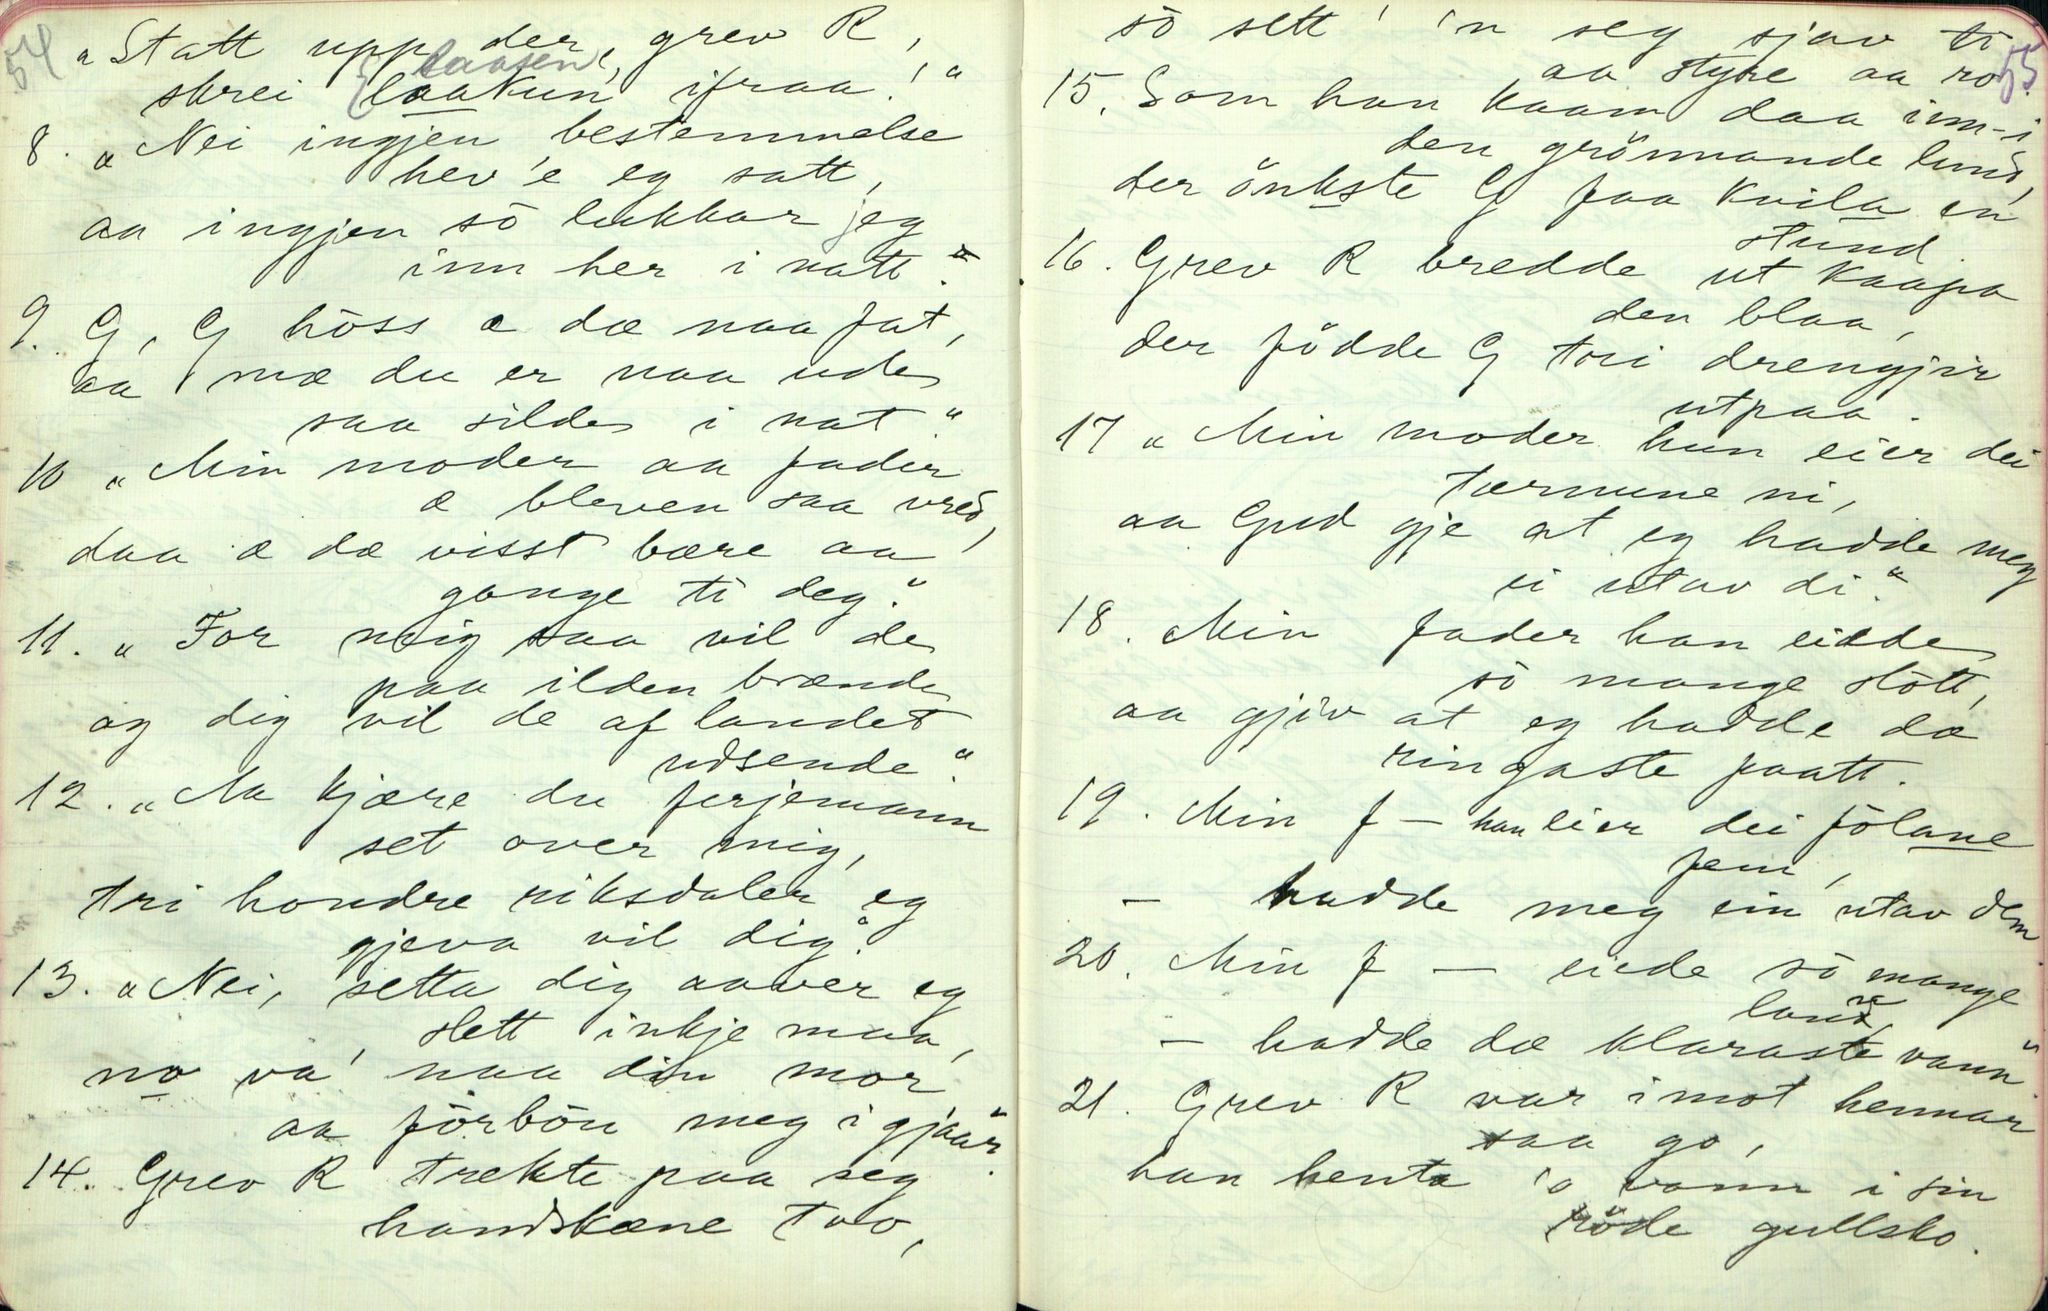 54
„Statt upp der, grev R,
laasen
skrei laakun ifraa!"
8. „Nei ingjen bestemmelse
hev'e eg satt,
aa ingjen sö lukkar jeg
inn her i natt."
9. G, G höss æ dæ naa fat,
aa mæ du er naa ude
saa silde i nat."
10 „Min moder aa fader
æ bleven saa vred,
daa æ dæ visst bære aa
gange ti deg."
11. „For mig saa vil de
paa ilden brænde
og dig vil de af landet
udsende."
12. „Aa kjære du ferjemann
set over mig,
tri hondre riksdaler eg
gjeva vil dig."
13. „Nei, setta dig aaver eg
slett inkje maa,
no va' naa din mor
aa förbön meg i gjaar."
14. Grev R trekte paa seg
handskæne tvo,
55
sö sett' 'n seg sjav ti
aa styre aa ro.
15. Som han kaam daa inn-i
den grönnande lund,
der önkste G paa kvila en
stund.
16. Grev R bredde ut kaapa
den blaa,
der födde G tri drengjir
utpaa.
17 „Min moder hun eier dei
tærnune ni,
aa Gud gje at eg hadde meg
ei utav di."
18. Min fader han eidde
sö mange slött,
aa gjiv at eg hadde dæ
ringaste paatt.
19. Min f — han eier dei fölane
fem,
— hadde meg ein utav dem
20. Min f — eiede sö mange
land,
— hadde dæ klaraste vann"
21. Grev R var imot hennar
saa go,
han henta 'o vann i sin
röde gullsko.